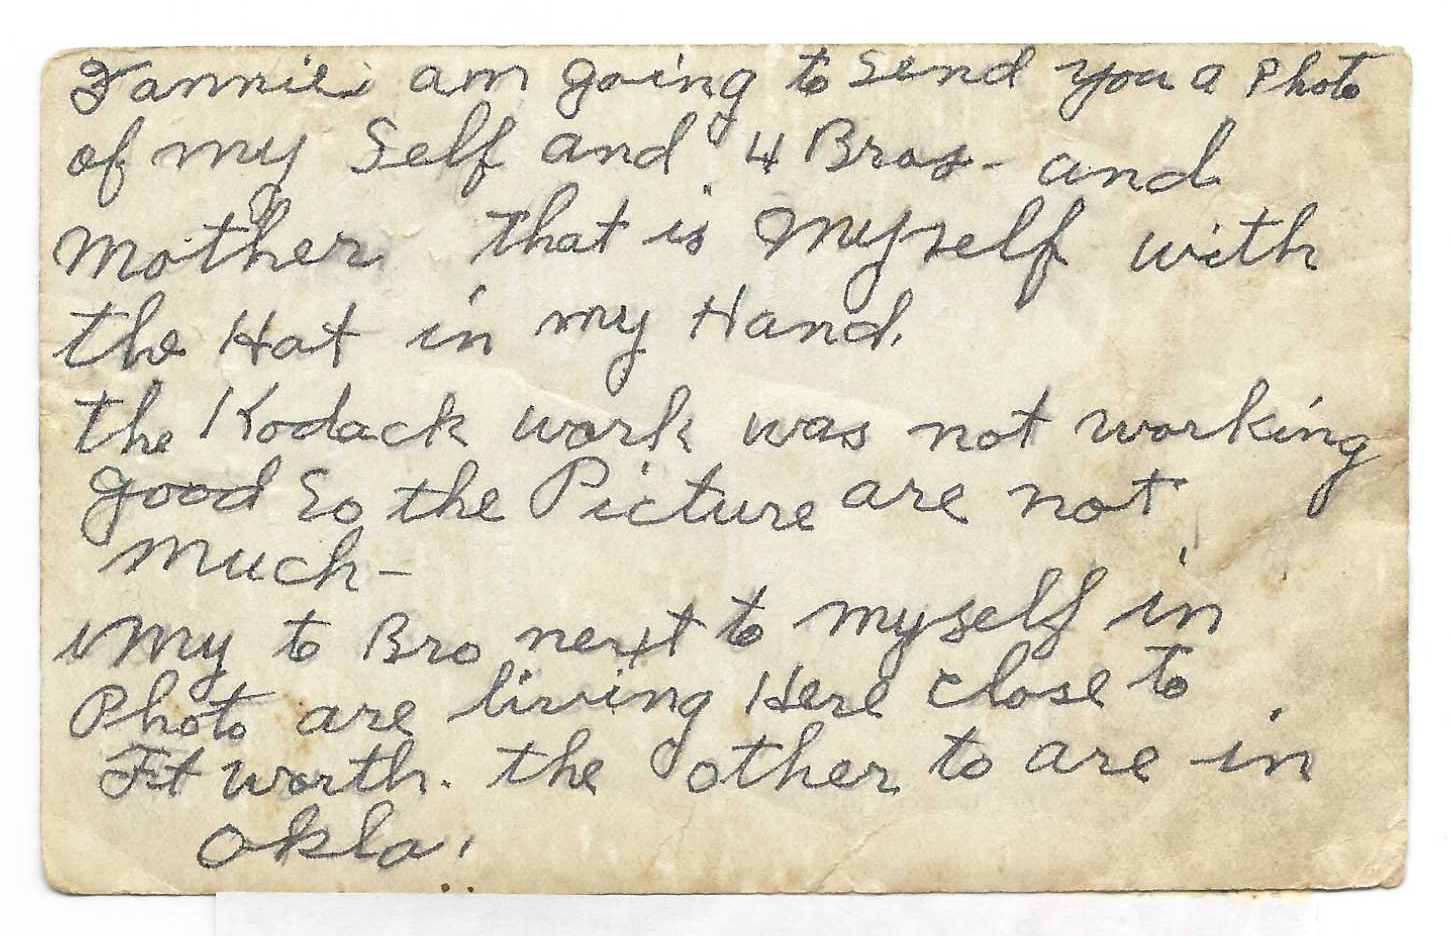 Fannie i am going to send you a Photo
of my Self and 4 Bros - and
Mother. that is Myself with
the Hat in my Hand.
the Kodack work was not working
good So the Picture are not
much -
My to Bro next to myself in
Photo are living Here close to
Ft worth. the other to are in
Okla.